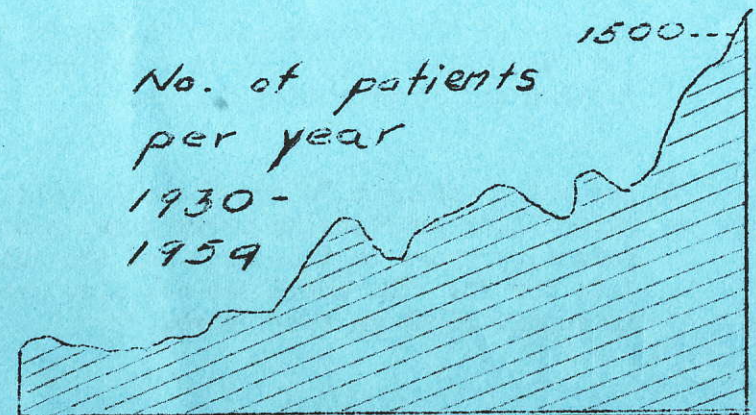 1500---
No. of patients
per year
1930-
1959